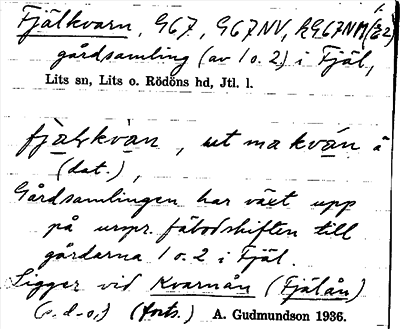 1.
Fjälkvarn, G67, G67NV, RG67NM(/22)
gårdsamling (av 1 o. 2) i Fjäl,
Lits sn, Lits o. Rödöns hd, Jtl. l.
fjàlkvàn, ut ma kván å
(dat.),
Gårdsamlingen har växt upp
på urspr. fäbodskiften till
gårdarna 1 o. 2 i Fjäl.
Ligger vid Kvarnån (Fjälån)
(s.d.o.) (forts.) A. Gudmundson 1936.